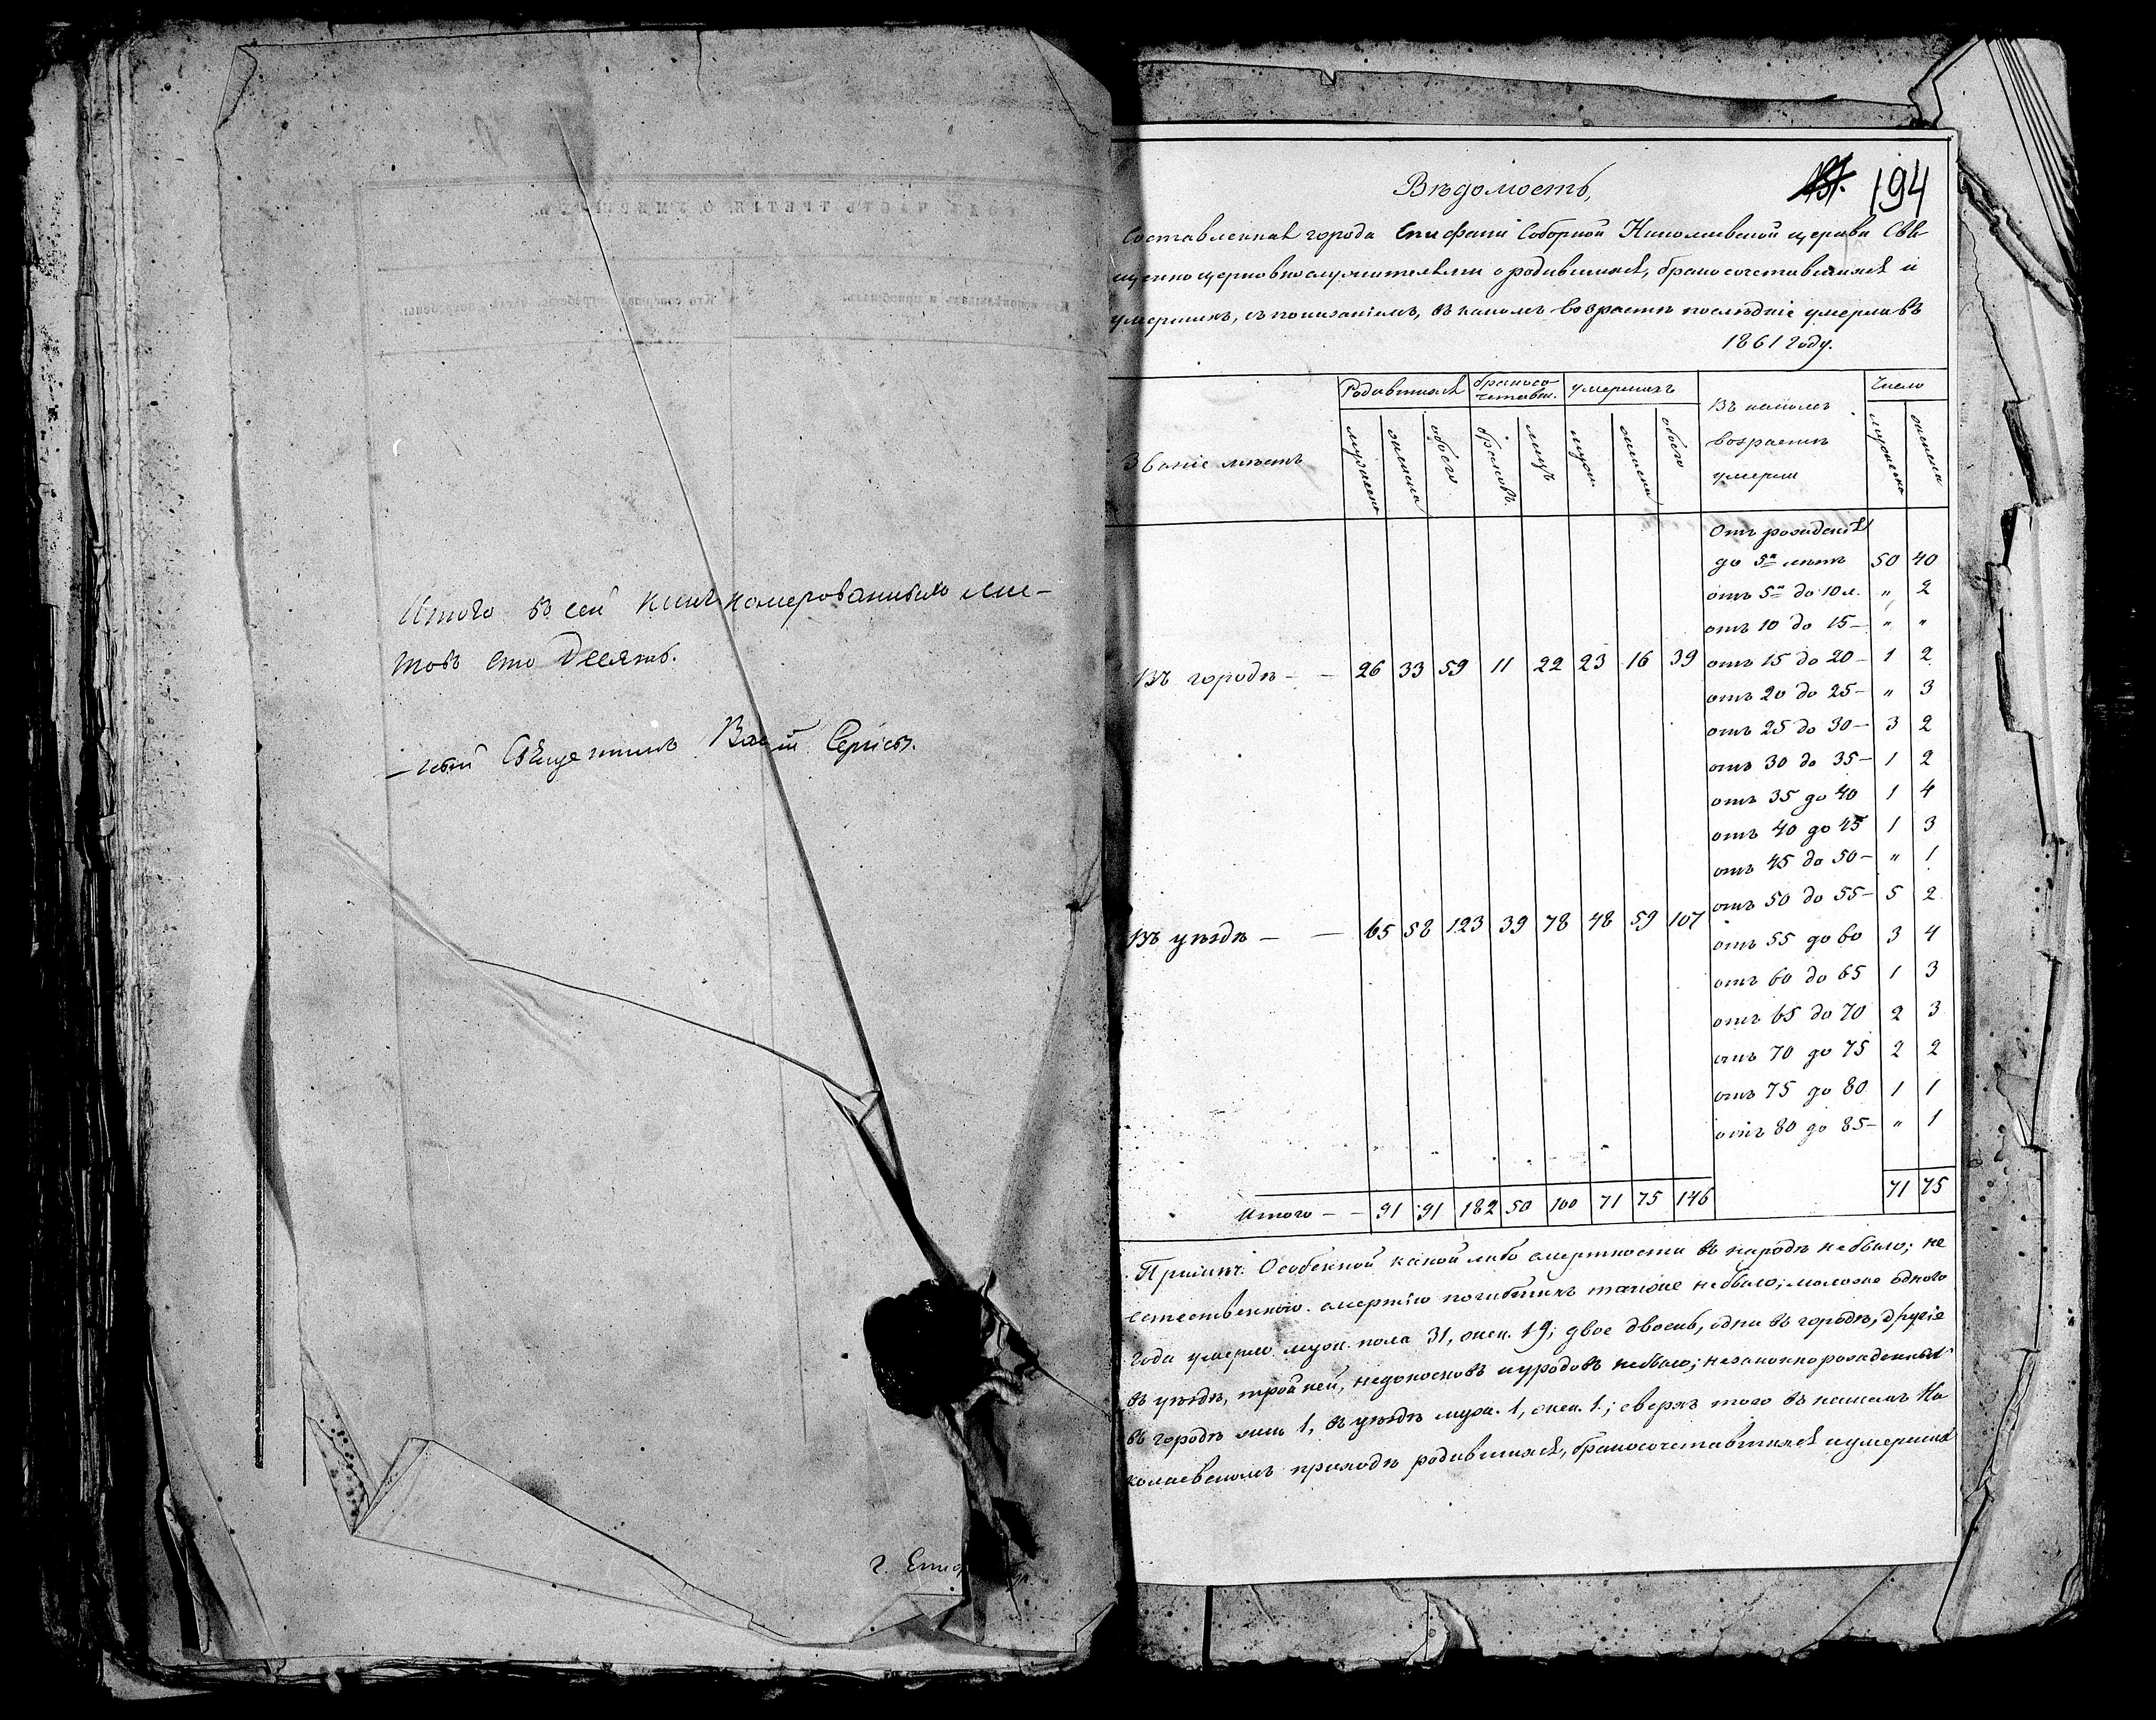 Итого въ сей книгѣ номерованныхъ лис-
товъ сто десять.
Священникъ Сергіевъ.
г.
194
Вѣдомость,
Составленная города Епифани Соборной Николаевской церкви Свя-
щенноцерковнослужителями о родившихся, бракосочетавшихся и
умершихъ, съ показаніемъ, въ какомъ возрастѣ послѣдніе умерли въ
1861 году.
Званіе мѣстъ
Родившихся
бракосо-
четавш.
умершихъ
Въ какомъ
возрастѣ
умерли
Число
мужеска
женска
обоего
браковъ
лицъ
муж.
женска
обоего
мужеска
женска
Отъ рожденія
до 5и лѣтъ 50 40
отъ 5и до 10 л. „ 2
отъ 10 до 15 — „ „
Въ городѣ — — 26 33 59 11 22 23 16 39 отъ 15 до 20 — 1 2
отъ 20 до 25 — „ 3
отъ 25 до 30 — 3 2
отъ 30 до 35 — 1 2
отъ 35 до 40 1 4
отъ 40 до 45 1 3
отъ 45 до 50 — „ 1
отъ 50 до 55 — 5 2
Въ уѣздѣ — — 65 58 123 39 78 48 59 107
отъ 55 до 60 3 4
отъ 60 до 65 1 3
отъ 65 до 70 2 3
отъ 70 до 75 2 2
отъ 75 до 80 1 1
отъ 80 до 85 — „ 1
Итого — — 91 91 182 50 100 71 75 146 71 75
Примѣч. Особенной какой либо смертности въ народѣ не было; не
естественною смертію погибшихъ также не было; моложе одного
года умерло муж. пола 31, жен. 19; двое двоень, одни въ городѣ, другіе
въ уѣздѣ, тройней, недоносковъ и уродовъ не было; незаконнорожденныхъ
въ городѣ жен. 1, въ уѣздѣ муж. 1, жен. 1; сверхъ того въ нашемъ Ни
колаевскомъ приходѣ родившихся, бракосочетавшихся и умершихъ